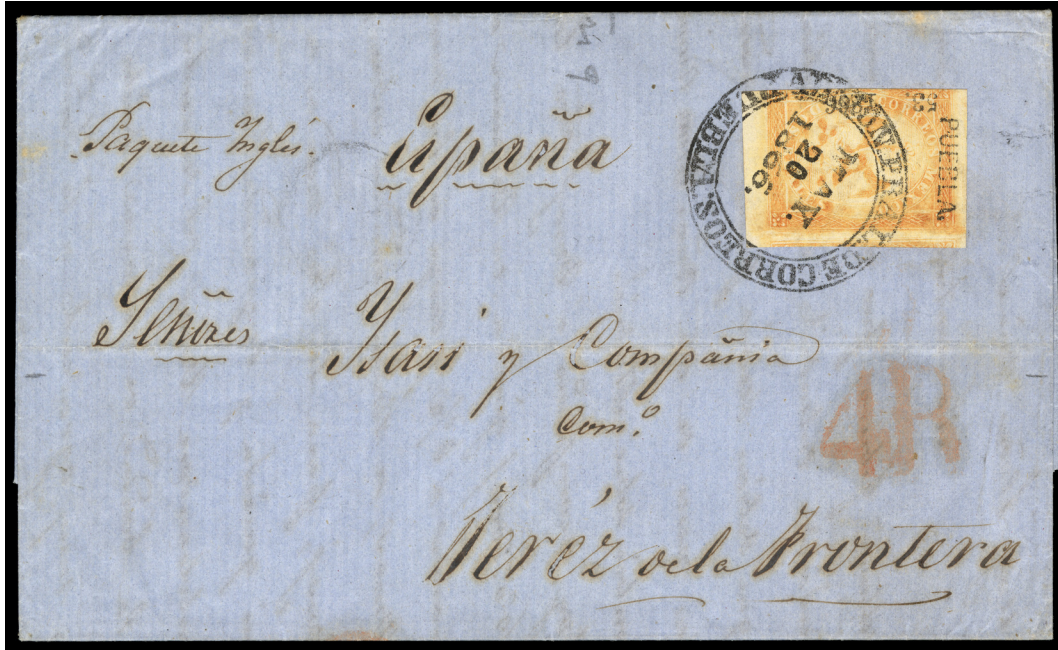 Paquete Inglés. España
PUEBLA
53
CORREO
ADMON. PRAL. DE CORREOS. PUEBLA
MAY.
20
1866.
Señores Ysasi y Compañia
Com.º
4R
Jeréz de la Frontera